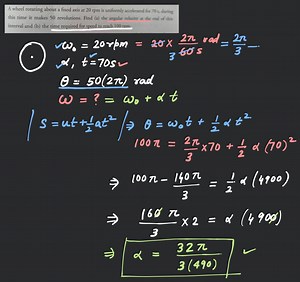 A wheel rotating about a fixed axis at 20 rpm is uniformly accelerated for 70 s, during
this time it makes 50 revolutions. Find (a) the angular velocity at the end of this
interval and (b) the time required for speed to reach 100 rpm.
ω₀ = 20 rpm = 20 × 2π rad / 60 s = 2π/3
3
α, t = 70s ✓
θ = 50(2π) rad
ω = ? = ω₀ + α t
S = ut + ½at² ⇒ θ = ω₀t + ½ α t²
100π = 2π/3 × 70 + ½ α (70)²
⇒ 100π − 140π/3 = ½ α (4900)
⇒ 160π/3 × 2 = α (4900)
⇒ α = 32π / 3(490) ✓